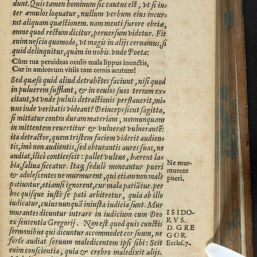 dunt. Quis tamen bonimium sic cautus est, vt si in-
ter æmulos loquatur, nullum verbum eius incurrat
aliquam quæstionem, nam
enim quod rectum dicitur, peruersum videtur. Fit
enim nescio quomodo, vt magis in alijs cernamus, si
quid delinquitur, quàm in nobis. vnde Poëta:
Cùm tua peruideas oculis mala lippus inunctis,
Cur in amicorum vitiis tam cernis acutum?
Sed quasi quid aliud detrahêtes faciunt, nisi quod
in puluerem sufflant, & in oculos suos terram ex-
citant, vt vnde plus detractionis perflauerit, mi-
nus inde veritatis videant? Deinceps sicut sagitta,
si mittatur contra duram materiam, nonnunquam
in mittentem reuertitur & vulnerat vulnerantẽ:
ita detractor, quum tristem faciem viderit audien-
tis, imò non audientis, sed obturantis aures suas, ne
audiat, illicò conticescit: pallet vultus, hærent la-
bia, saliua siccatur. Itaq; sedulò monentur pueri
& adolescentes ne murmurent, qui etiam non malè
patiuntur, etiamsi ignorent, cur mala patiãtur. per
hoc quisque iustè se pati arbitretur, quia ab illo
iudicatur, cuius nunquã iniusta iudicia sunt. Mur
murantes dicuntur intrare in iudicium cum Deo
ex sententia Gregorij. Non est quod quis cunctis
sermonibus qui dicuntur accommodet cor suum, ne
fortè audiat seruum maledicentem ipsi sibi: Scit
enim conscientia, quia & crebrò maledixit alijs.
Ne mur-
murent
pueri.
ISIDO-
RVS.
D. GRE
GOR.
Eccles. 7.